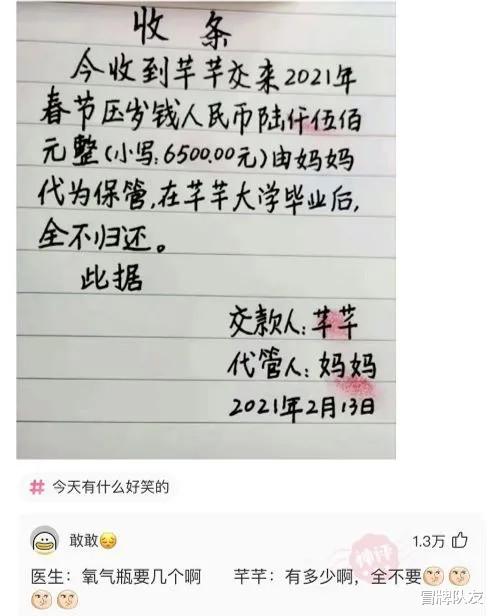 收条
今收到芊芊交来2021年
春节压岁钱人民币陆仟伍佰
元整(小写:6500.00元)由妈妈
代为保管,在芊芊大学毕业后,
全不归还。
此据
交款人:芊芊
代管人:妈妈
2021年2月13日
# 今天有什么好笑的
敢敢 1.3万
神评
医生:氧气瓶要几个啊 芊芊:有多少啊,全不要
冒牌队友